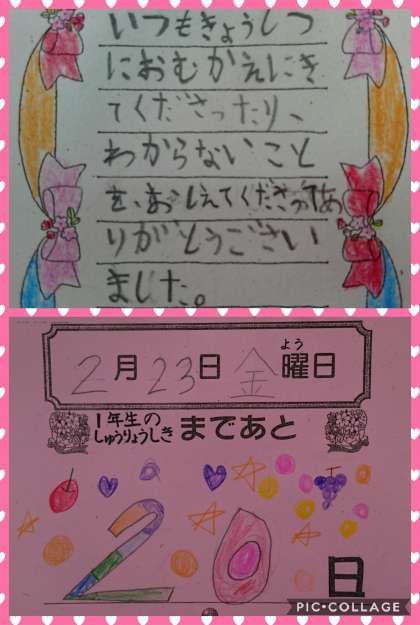 いつもきょうしつ
におむかえにき
てくださったり、
わからないこと
を、おしえてくださってあ
りがとうござい
ました。
2月23日金曜日
よう
1年生の
しゅうりょうしき
まであと
20日
PIC•COLLAGE